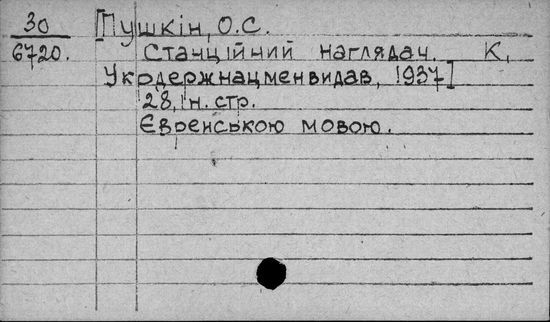 30 [Пушкін, О.С.
6720. Станційний наглядач. К,
Укрдержнацменвидав, 1937]
28, Ін. стр.
Єврейською мовою.